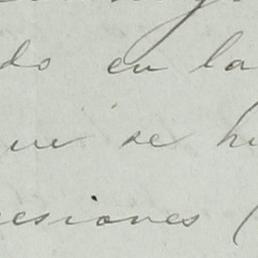 do en la
que se hi
resiones (